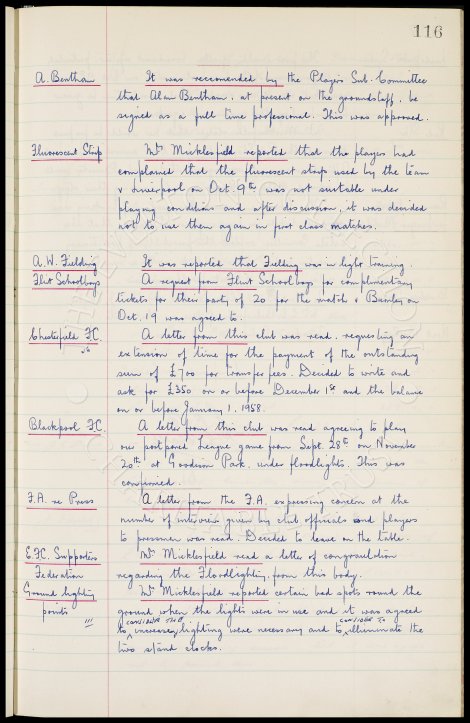 116
A. Bentham It was reccomended by the Players Sub. Committee
that Alan Bentham, at present on the groundstaff, be
signed as a full time professional. This was approved.
Fluorescent Strip Mr Micklesfield reported that the players had
complained that the fluorescent strips used by the team
v Liverpool on Oct. 9th was not suitable under
playing conditions and after discussion, it was decided
not to use them again in first class matches.
A. W. Fielding It was reported that Fielding was in light training.
Flint Schoolboys A request from Flint Schoolboys for complimentary
tickets for their party of 20 for the match v Burnley on
Oct. 19 was agreed to.
Chesterfield F.C. A letter from this club was read, requesting an
extension of time for the payment of the outstanding
sum of £700 for transfer fees. Decided to write and
ask for £350 on or before December 1st and the balance
on or before January 1. 1958.
Blackpool F.C. A letter from this club was read agreeing to play
our postponed League game from Sept. 28th on November
20th at Goodison Park, under floodlights. This was
confirmed.
F.A. re Press A letter from the F.A. expressing concern at the
number of interviews given by club officials and players
to pressmen was read. Decided to leave on the table.
E.F.C. Supporters Mr Micklesfield read a letter of congratulation
Federation regarding the Floodlighting, from this body.
Ground lighting Mr Micklesfield reported certain bad spots round the
points ground when the lights were in use and it was agreed
to consider the increased lighting were necessary and to consider to illuminate the
two stand clocks.